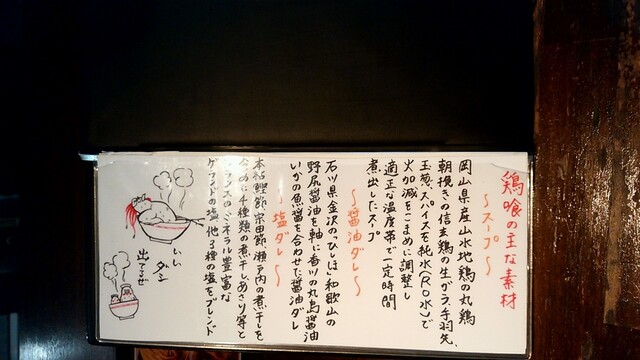 鶏喰の主な素材
〜スープ〜
岡山県産山水地鶏の丸鶏
朝挽きの信玄鶏の生ガラ、手羽先、
玉葱、スパイスを純水(RO水)で
火加減をこまめに調整し
適正な温度帯で一定時間
煮出したスープ
〜醤油ダレ〜
石川県金沢の「ひしほ」和歌山の
野尻醤油を軸に香川の丸島醤油
いかの魚醤を合わせた醤油ダレ
〜塩ダレ〜
本枯鰹節、宗田節、瀬戸内の煮干しを
含めた4種類の煮干し、あさり等と
フランスのミネラル豊富な
ゲランドの塩、他3種の塩をブレンド
いい
ダシ
出てるぜ